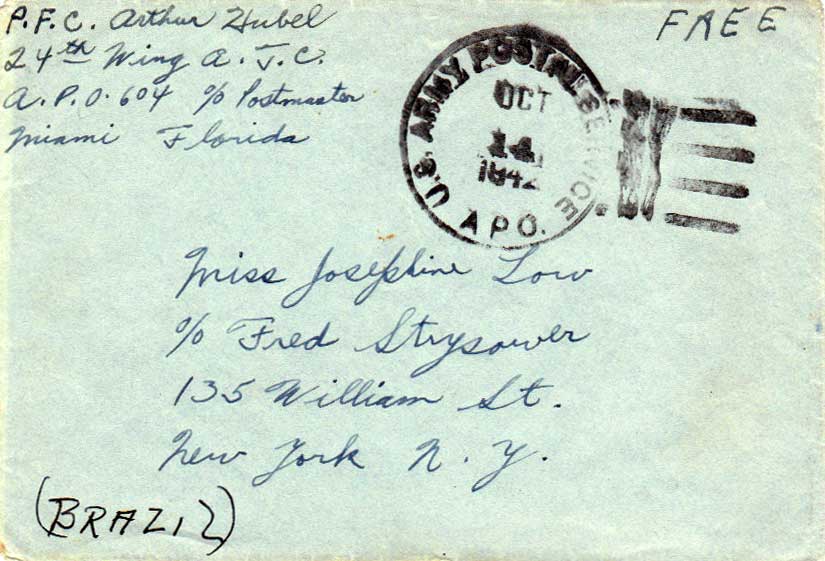 P.F.C. Arthur Hubel
24th Wing A.T.C.
A.P.O. 604 % Postmaster
Miami Florida
FREE
U.S. ARMY POSTAL SERVICE
OCT
14
1942
A.P.O.
Miss Josephine Low
% Fred Strysower
135 William St.
New York N.Y.
(BRAZIL)